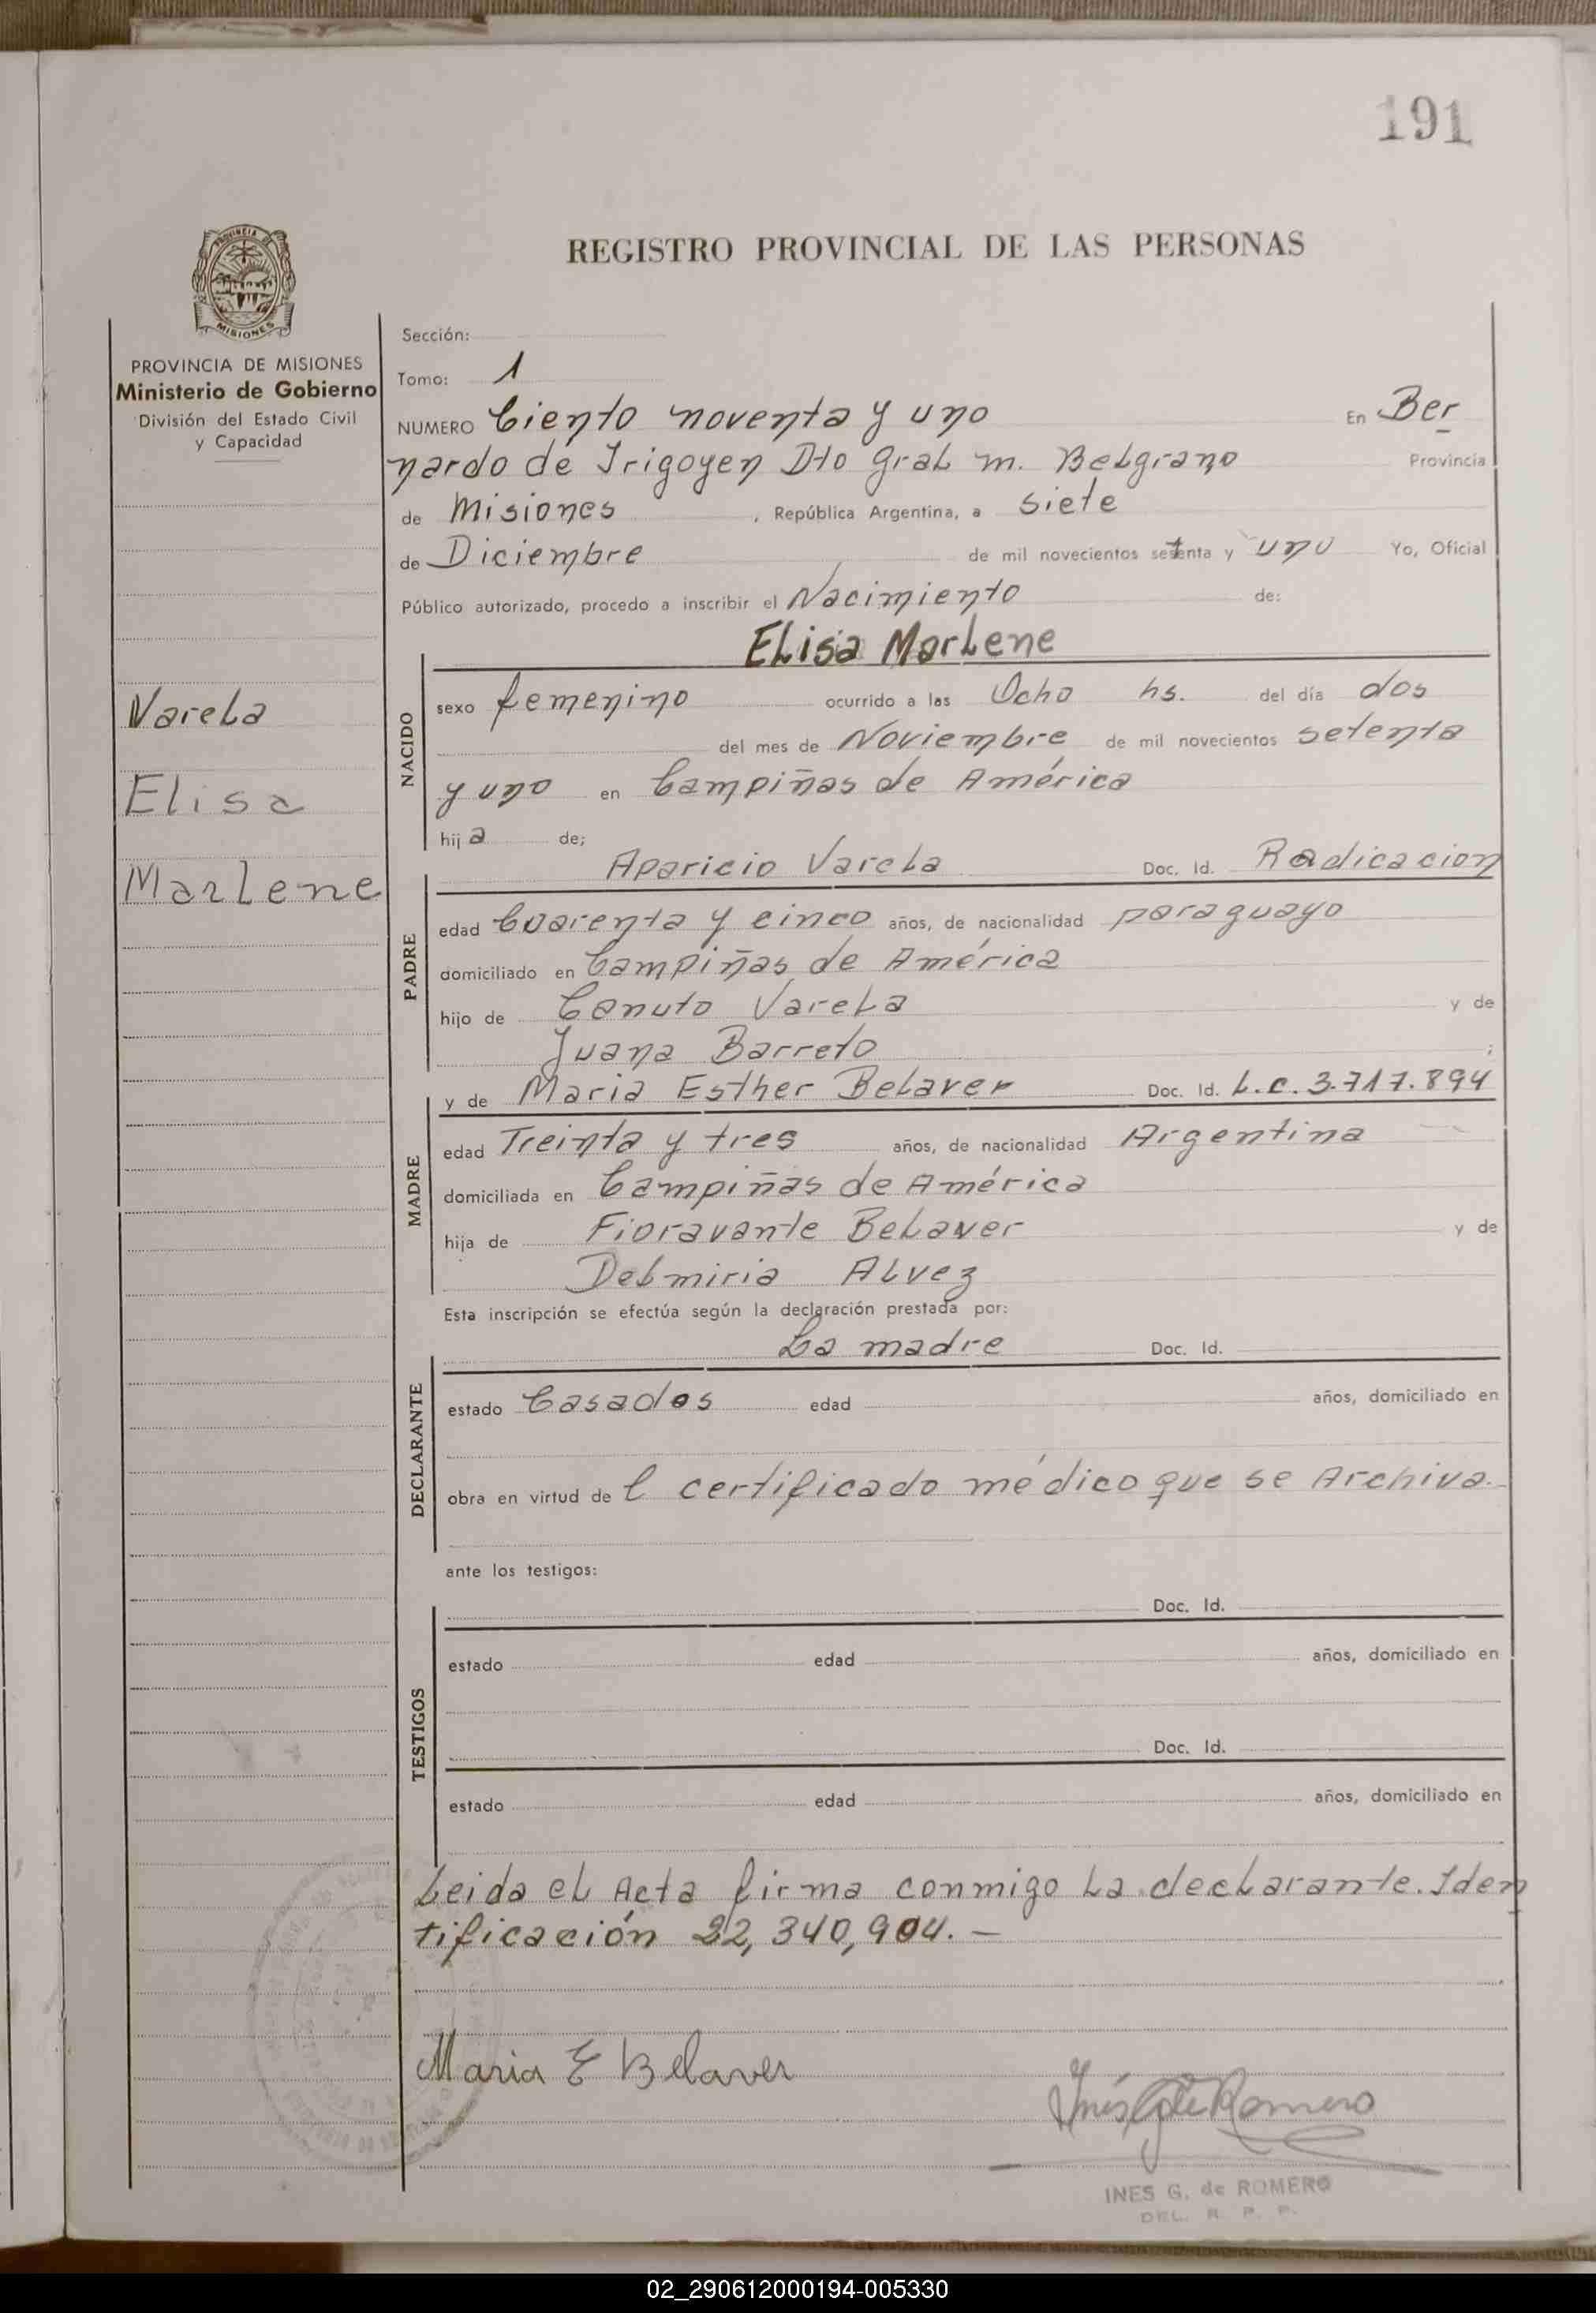 191
REGISTRO PROVINCIAL DE LAS PERSONAS
PROVINCIA DE MISIONES
Ministerio de Gobierno
División del Estado Civil
y Capacidad
Varela
Elisa
Marlene
Sección:
Tomo: 1
NUMERO Ciento noventa y uno En Ber
nardo de Irigoyen Dto Gral m. Belgrano Provincia
de Misiones , República Argentina, a siete
de Diciembre de mil novecientos setenta y uno Yo, Oficial
Público autorizado, procedo a inscribir el Nacimiento de:
Elisa Marlene
NACIDO
sexo femenino ocurrido a las Ocho hs. del día dos
del mes de Noviembre de mil novecientos setenta
y uno en Campiñas de América
hija de;
Aparicio Varela Doc. Id. Radicacion
PADRE
edad Cuarenta y cinco años, de nacionalidad paraguayo
domiciliado en Campiñas de América
hijo de Canuto Varela y de
Juana Barreto ;
y de Maria Esther Belaver Doc. Id. L.C. 3.717.894
MADRE
edad Treinta y tres años, de nacionalidad Argentina
domiciliada en Campiñas de América
hija de Fioravante Belaver y de
Delmiria Alvez
Esta inscripción se efectúa según la declaración prestada por:
La madre Doc. Id.
DECLARANTE
estado Casados edad años, domiciliado en
obra en virtud de l certificado médico que se Archiva.
ante los testigos:
Doc. Id.
TESTIGOS
estado edad años, domiciliado en
Doc. Id.
estado edad años, domiciliado en
Leida el Acta firma conmigo la declarante. Iden
tificación 22,340,904.—
Maria E Belaver
Inés G de Romero
INES G. de ROMERO
DEL. R. P. P.
02_290612000194-005330